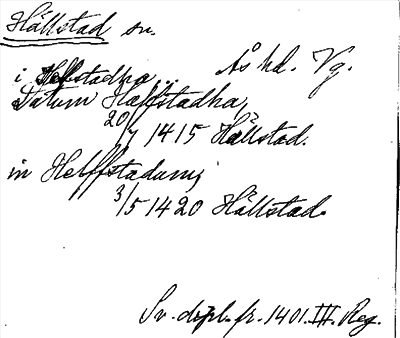 Hällstad sn.
i Helfstadha, Ås hd. Vg.
Datum Hælfstadha,
20/7 1415 Hällstad.
in Helffstadum,
3/5 1420 Hällstad.
Sv. dipl. fr. 1401. III. Reg.